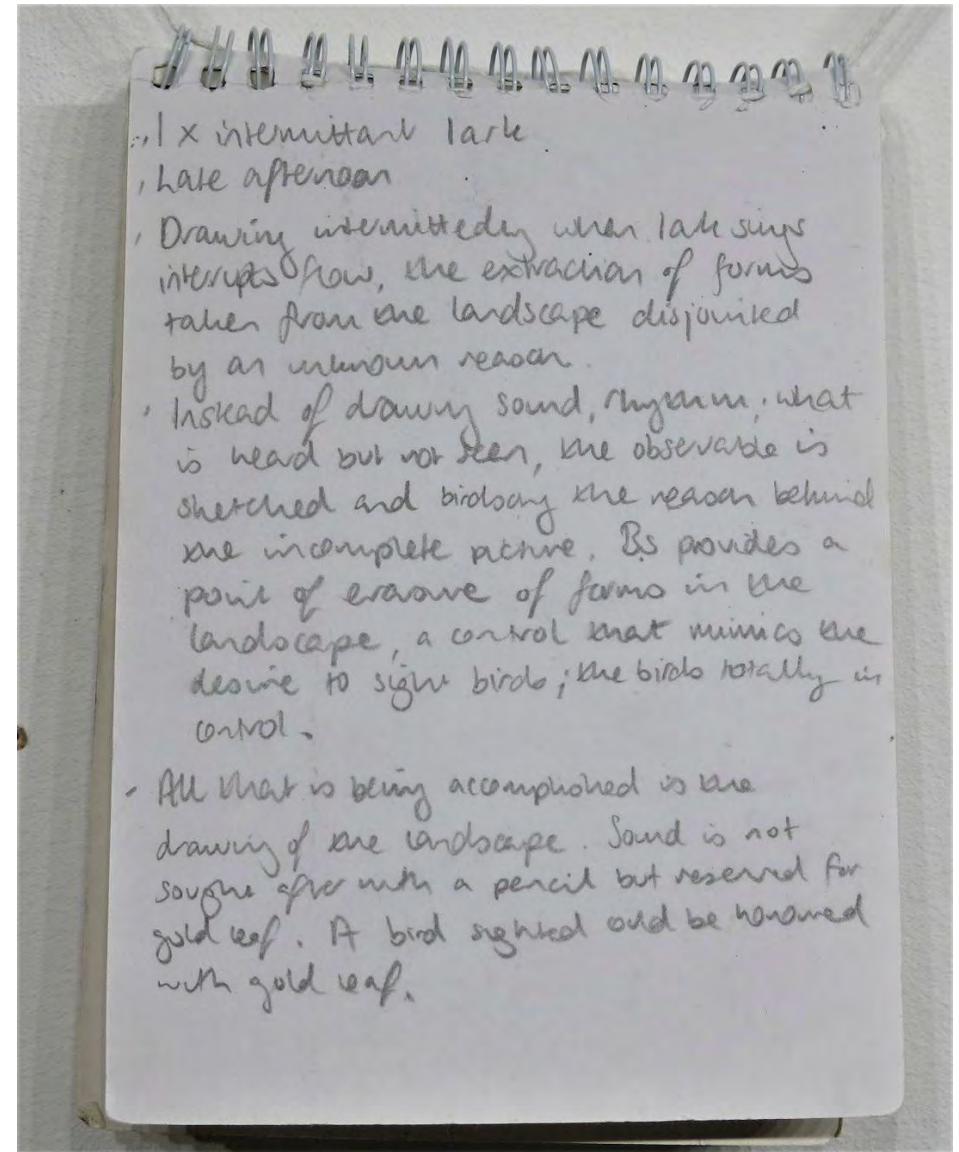 , 1 x intermittant lark
, Late afternoon
, Drawing intermittedly when lark sings
interrupts flow, the extraction of forms
taken from the landscape disjointed
by an unknown reason.
, Instead of drawing sound, rhythm, what
is heard but not seen, the observable is
sketched and birdsong the reason behind
the incomplete picture. Bs provides a
point of erasure of forms in the
landscape, a control that mimics the
desire to sight birds; the birds totally in
control.
- All that is being accomplished is the
drawing of the landscape. Sound is not
sought after with a pencil but reserved for
gold leaf. A bird sighted could be honoured
with gold leaf.